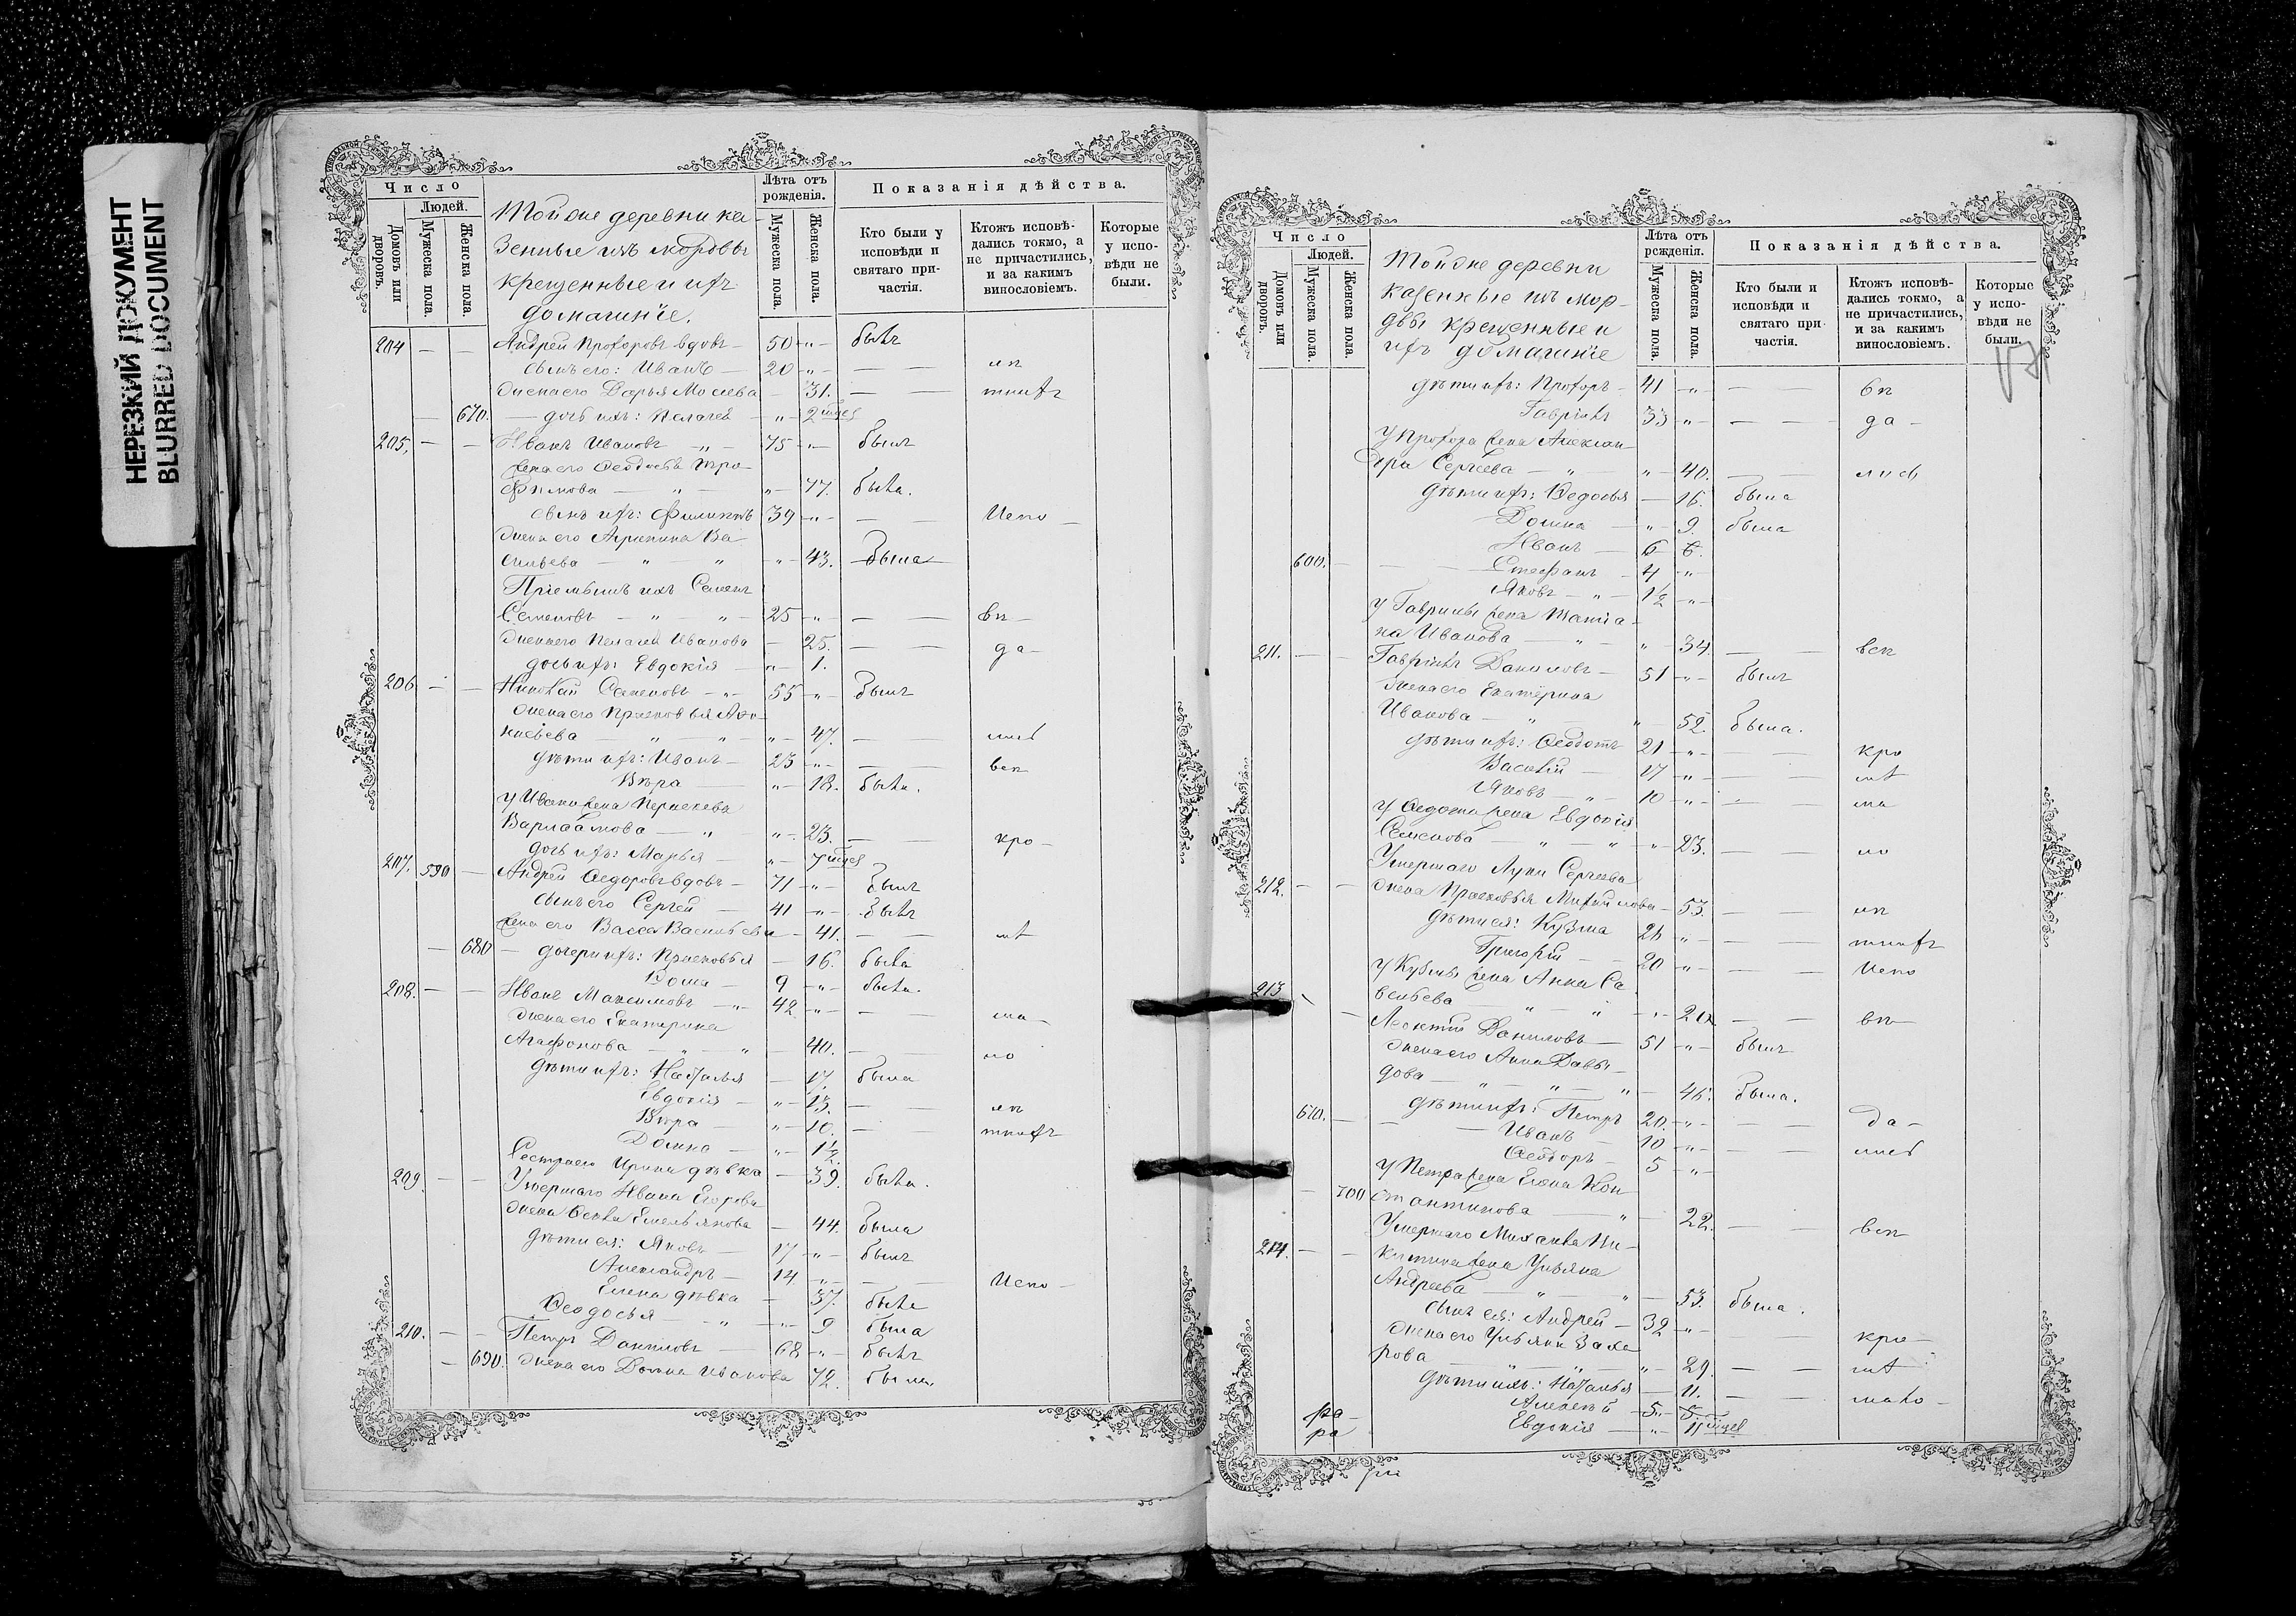 НЕРЕЗКИЙ ДОКУМЕНТ
BLURRED DOCUMENT
Число
Людей.
Домовъ или дворовъ.
Мужеска пола.
Женска пола.
Тойже деревни ка-
зенные изъ мордвы
крещенные и ихъ
домашніе.
Лѣта отъ рожденія.
Мужеска пола.
Женска пола.
Показанія дѣйства.
Кто были у исповѣди и святаго причастія.
Ктожъ исповѣдались токмо, а не причастились, и за какимъ винословіемъ.
Которые у исповѣди не были.
204 — — Андрей Прохоровъ вдовъ — 50 -„- былъ
сынъ его: Иванъ — 20 -„- — —
жена его Дарья — 31. — —
— 670. — дочь ихъ: Пелагея — „ — 2
205. — — Иванъ Ивановъ -„- 75 -„- былъ
жена его Ѳеодосья Тро-
фимова — „ — „ — 77. была.
сынъ ихъ: Филиппъ 39 -„- — — Испо —
жена его Агрипина Ва-
сильева — „ — „ -„- 43. была
Пріемышъ ихъ Семенъ
Семеновъ — „ — „ — 25 -„- — — вп —
жена его Пелагея Иванова — 25. — — да —
дочь ихъ: Евдокія — „ — 1.
206 — — Николай Семеновъ -„- 55 -„- былъ
жена его Прасковья
— „ — „ — 47. — — лись
дѣти ихъ: Иванъ — 23 -„- — — вел
Вѣра — „ — 18. была.
у Ивана жена
Варлаамова — „ „ — 23. — — кро —
дочь ихъ: Марья — „ — 7
207. 590 — Андрей Ѳедоровъ вдовъ — 71 -„- былъ
сынъ его Сергей — 41 -„- былъ
жена его Васса Васильева — 41. — —
— 680 — дочери ихъ: Прасковья — 16. была
9 -„- была.
208. — — Иванъ Максимовъ -„- 42 -„- — — ма —
жена его Екатерина
Агафонова — „ — „ — 40. — — ло
дѣти ихъ: Наталья — 17. была
Евдокія — „ — 13. — —
Вѣра — „ — 10. — —
Домна — „ — 1½
Сестра его Ирина дѣвка — 39. была.
209. — — Умершаго Ивана Егорова
жена Емельянова — 44. была
дѣти ея: Яковъ — 17 -„- былъ
Александръ — 14 -„- — — Испо —
Елена дѣвка — 37. была
Ѳеодосья — „ -„- 9 была
210. — — Петръ Даниловъ — 68 -„- былъ
— 690. жена его Домна Иванова 72. была.
Число
Людей.
Домовъ или дворовъ.
Мужеска пола.
Женска пола.
Тойже деревни
казенные изъ мор-
двы крещенные и
ихъ домашніе
Лѣта отъ рожденія.
Мужеска пола.
Женска пола.
Показанія дѣйства.
Кто были и исповѣди и святаго причастія.
Ктожъ исповѣдались токмо, а не причастились, и за какимъ винословіемъ.
Которые у исповѣди не были.
дѣти ихъ: Прохоръ — 41 -„- — — вп
Гавріилъ 33 -„- — — да —
у Прохора жена Алексан-
дра Сергеева — „ — „ — 40. — — лись
дѣти ихъ: Ѳедосья — 16. была
Домна — „ — 9. была
Иванъ — 6
600. — — Стефанъ — 4 -„-
Яковъ — „ — 1½ -„-
у Гаврилы жена Татіа-
на Иванова — „ „ — 34. — — вел
211. — — Гавріилъ Даниловъ — 51 -„- былъ
жена его Екатерина
Иванова — „ „ — 52. была.
дѣти ихъ: Ѳеодотъ 21 -„- — — кро
Василій — 17 -„- — —
Яковъ — „ — 10 -„- — — ма
у Ѳедота жена Евдокія
Семенова — „ — „ — 23. — — ло
Умершаго Луки Сергеева
212. — — жена Прасковья Михайлова — 53. — —
дѣти ея: Кузма 26 -„- — —
Григорій — 20 -„- — — Испо
у Кузмы жена Анна Са-
вельева — „ — „ -„- — — вп —
213 — Леонтій Даниловъ — 51 -„- былъ
жена его Анна Давы-
дова — „ — „ — „ — 46. была.
610. — дѣти ихъ: Петръ 20. -„- — — да —
Иванъ — 10 -„- — — лись
Ѳеодоръ — 5 -„-
у Петра жена Елена Кон-
— 700 стантинова — „ — 22. — — вел
Умершаго Михаила Ни-
214. — — китина жена Ульяна
Андреева — „ — „ — 53. была.
сынъ ея: Андрей — 32 -„- — — кро —
жена его Ульяна Заха-
рова — „ — „ „ — 29. — —
дѣти ихъ: Наталья — 11. — — мало —
Алексѣй — 5
Евдокія — „ — 11